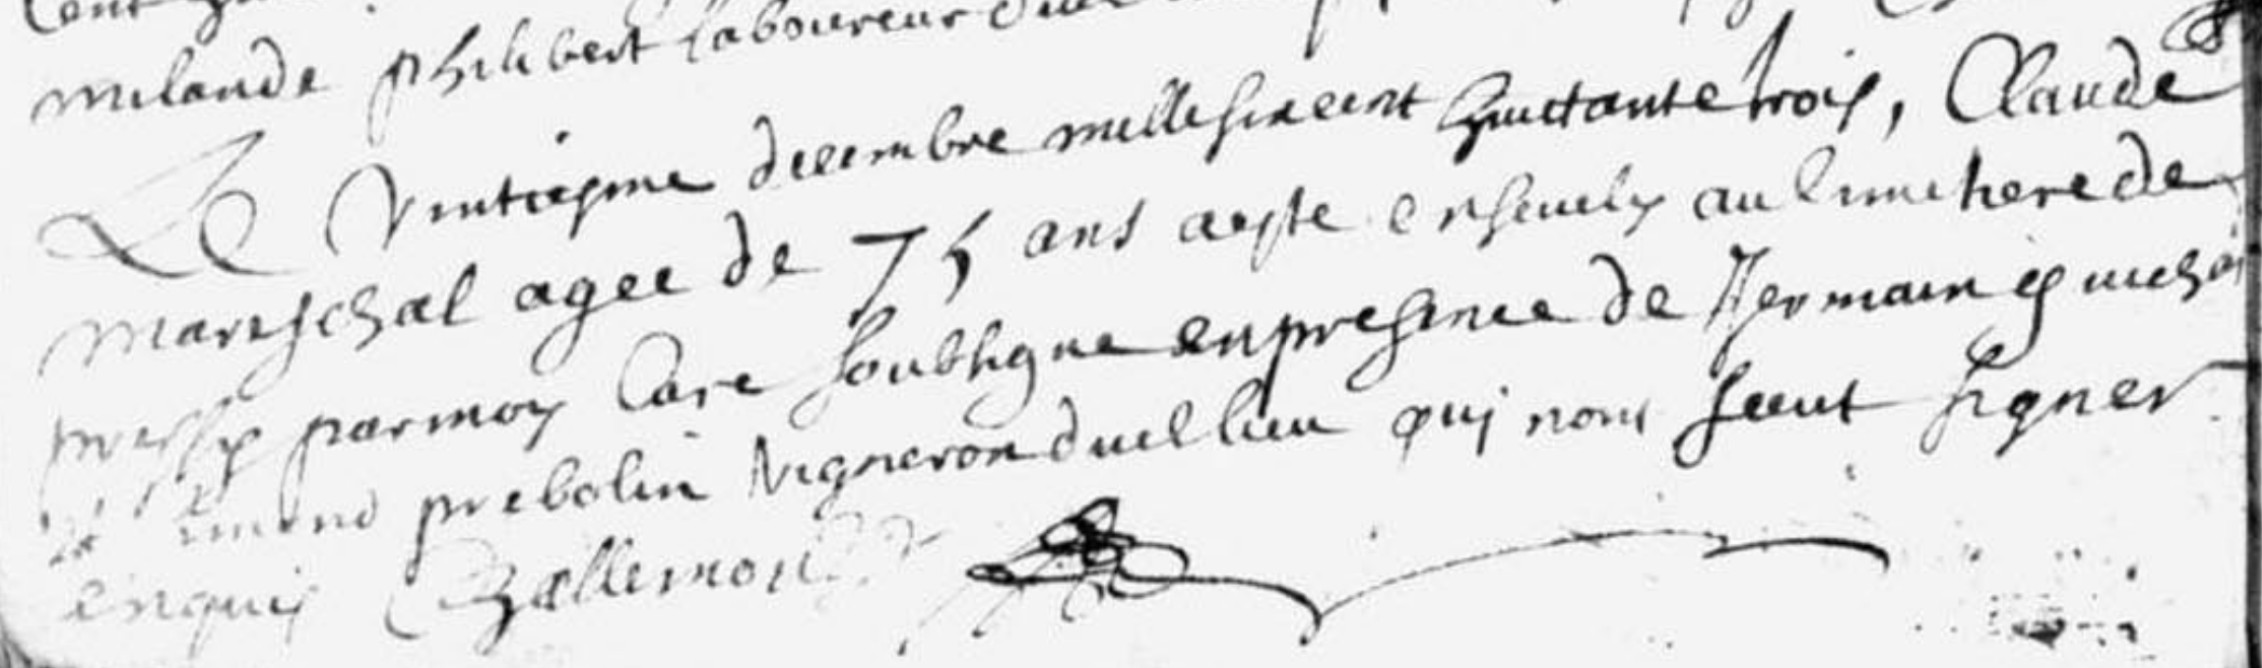 milande philibert laboureur dud
Le Vintiesme decembre mille six cent huictante trois, Claude
mareschal agee de 75 ans aeste ensevely au Cimethere de
par moy Cure soubsigne en presence de Germain
prebolin Vigneron dud lieu quj nont sceut signer
enquis Challemon